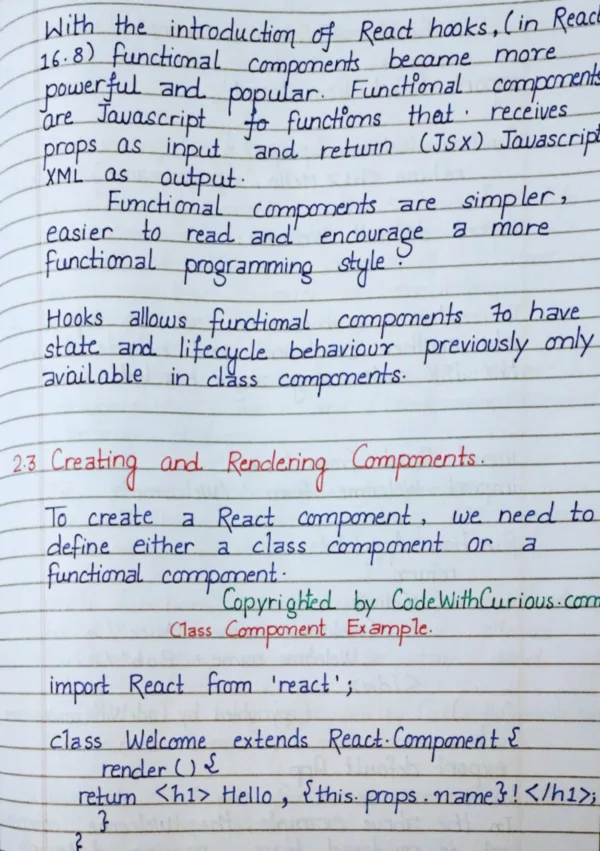 With the introduction of React hooks, (in React
16.8) functional components became more
powerful and popular. Functional components
are Javascript to functions that. receives
props as input and return (JSX) Javascript
XML as output.
Functional components are simpler,
easier to read and encourage a more
functional programming style.
Hooks allows functional components to have
state and lifecycle behaviour previously only
available in class components.
2.3 Creating and Rendering Components.
To create a React component, we need to
define either a class component or a
functional component.
Copyrighted by CodeWithCurious.com
Class Component Example.
import React from 'react';
class Welcome extends React.Component {
render () {
return <h1> Hello, {this.props.name}! </h1>;
}
}